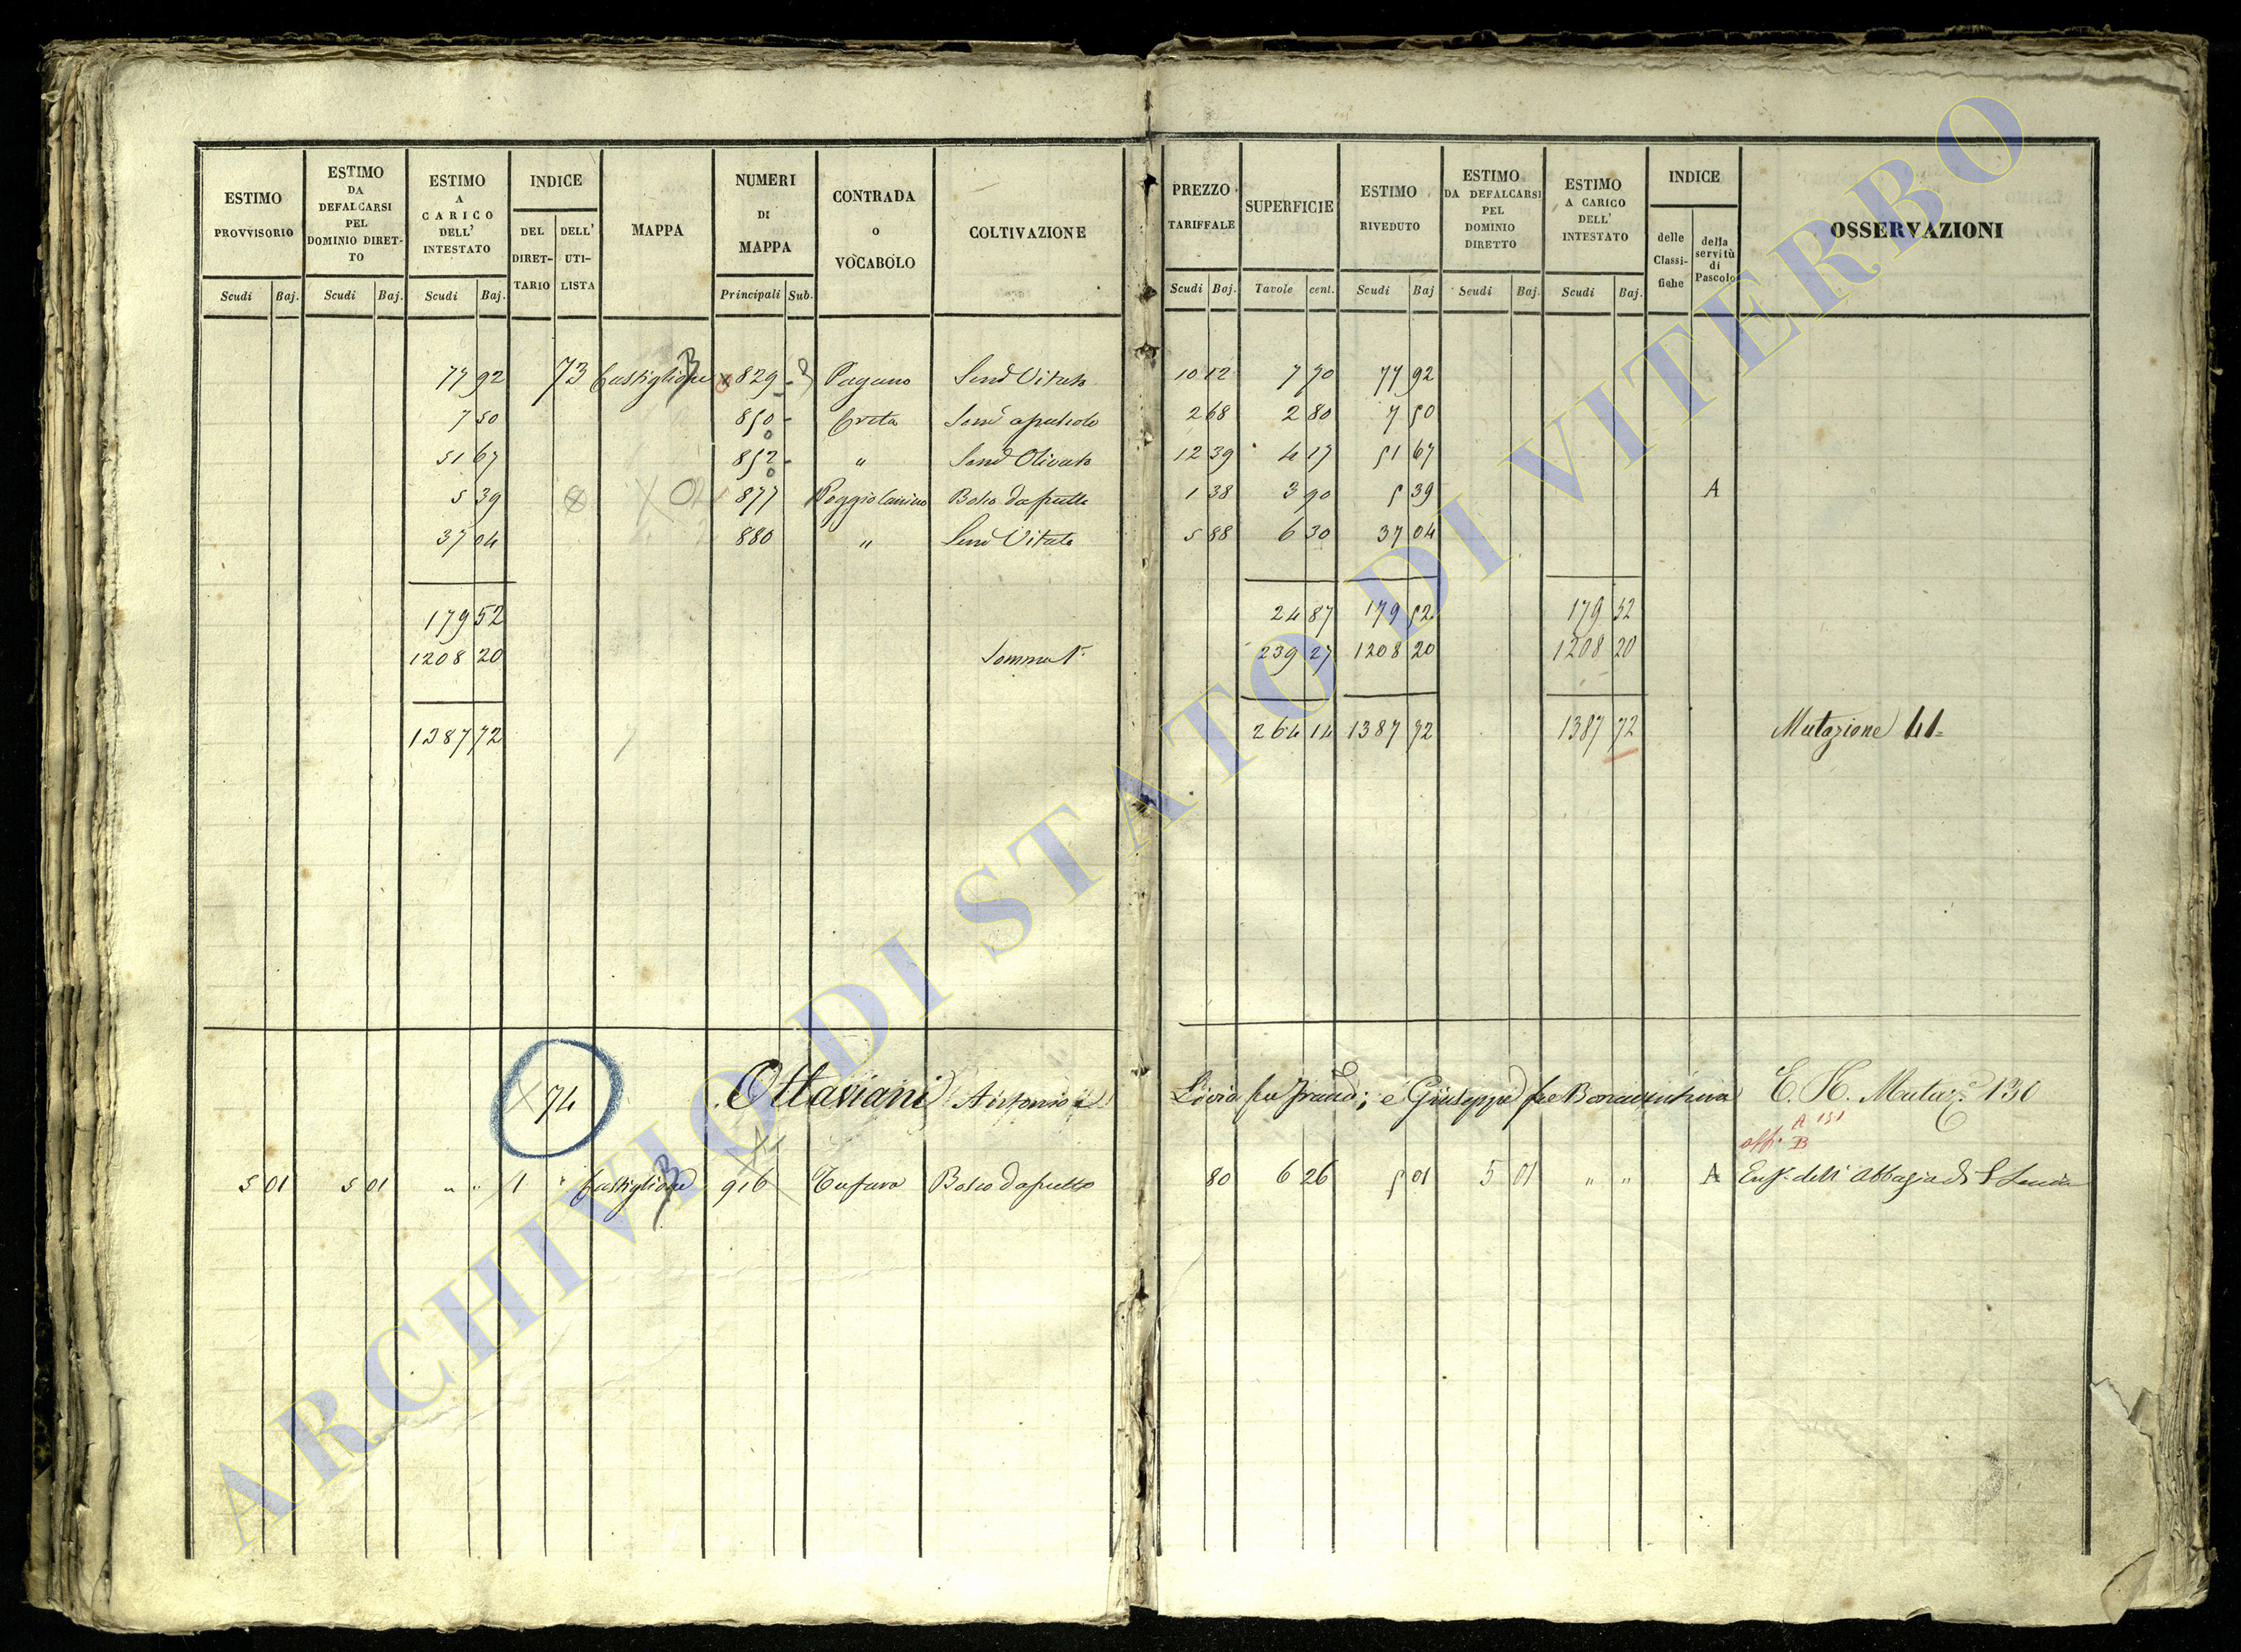 ESTIMO PROVVISORIO
ESTIMO DA DEFALCARSI PEL DOMINIO DIRET-TO
ESTIMO A CARICO DELL' INTESTATO
INDICE
DEL DIRET-TARIO
DELL' UTI-LISTA
MAPPA
NUMERI DI MAPPA
CONTRADA o VOCABOLO
COLTIVAZIONE
PREZZO TARIFFALE
SUPERFICIE
ESTIMO RIVEDUTO
ESTIMO DA DEFALCARSI PEL DOMINIO DIRETTO
ESTIMO A CARICO DELL' INTESTATO
INDICE
delle Classifiche
della servitù di Pascolo
OSSERVAZIONI
Scudi Baj. Scudi Baj. Scudi Baj. Principali Sub. Scudi Baj. Tavole cent. Scudi Baj Scudi Baj. Scudi Baj.
77 92 73 Castiglione B 829 Pagano Sem Vitato 10 12 7 70 77 92
7 50 850 Creta Sem 2 68 2 80 7 50
51 67 852 " Sem Olivato 12 39 4 17 51 67
5 39 877 Poggio Bosco da frutto 1 38 3 90 5 39 A
37 04 880 " Sem Vitato 5 88 6 30 37 04
179 52 24 87 179 52 179 52
1208 20 Somma 239 27 1208 20 1208 20
1387 72 264 14 1387 72 1387 72 Mutazione 41
74 Ottaviani Antonio e Livio fu ; e Giuseppe fu Bonaventura E. H. Mutaz. 130
A 131
B
5 01 5 01 " " 1 " Castiglione B 916 Tufara Bosco da frutto 80 6 26 5 01 5 01 " " A Enf. dell' Abbazia di S Lucia
ARCHIVIO DI STATO DI VITERBO